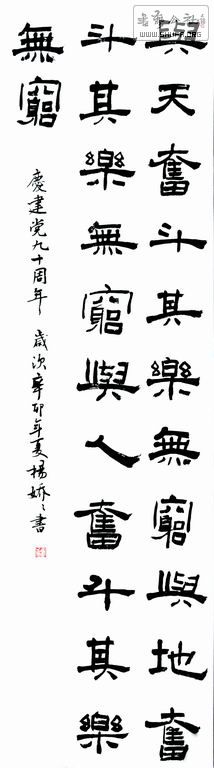 與天奮斗其樂無窮與地奮
斗其樂無窮與人奮斗其樂
無窮
慶建党九十周年 歲次辛卯年夏楊嬌〻書